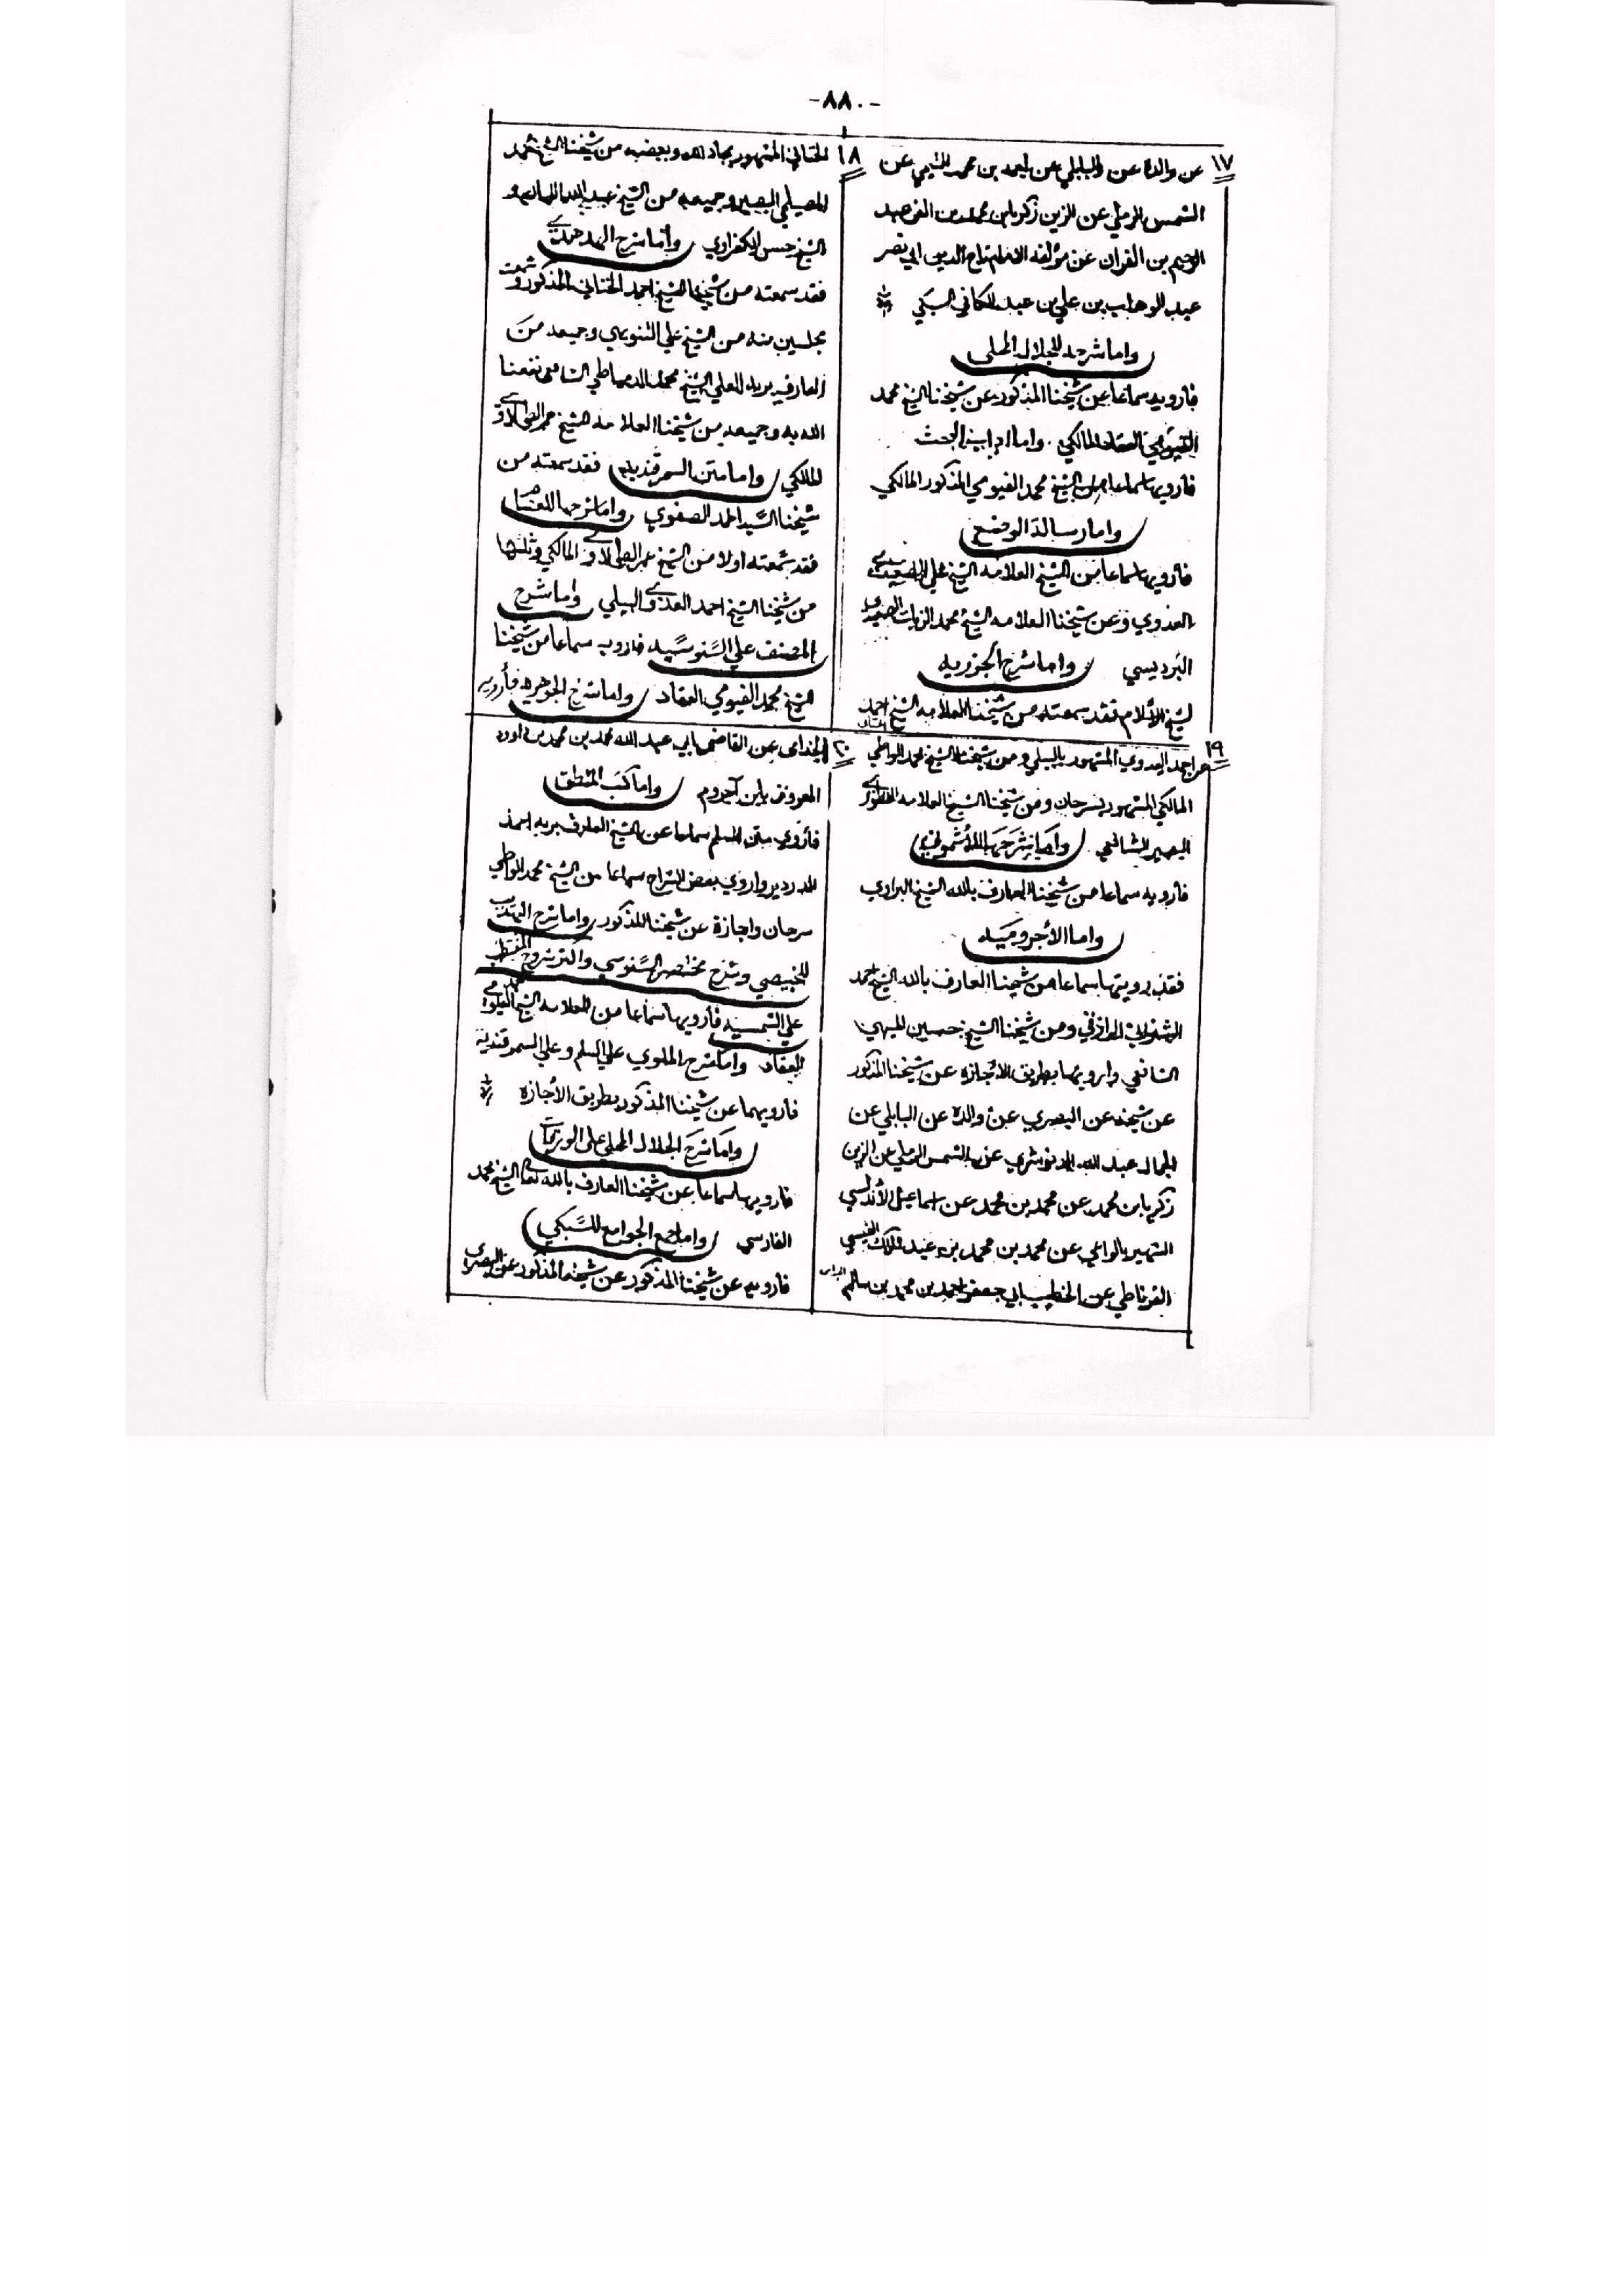 -٨٨٠-
١٧
عن والده عن البابلي عن احمد بن محمد عن
الشمس الرملي عن الزين زكريا بن محمد عن العز عبد
الرحيم بن الفرات عن مؤلفه الامام تاج الدين ابي نصر
عبد الوهاب بن علي بن عبد الكافي السبكي
واما شرحه للجلال المحلي
فأرويه سماعا عن شيخنا المذكور عن شيخنا الشيخ محمد
الفيومي العقاد المالكي . واما اداب البحث
فأرويها سماعا عن الشيخ محمد الفيومي المذكور المالكي
واما رسالة الوضع
فأرويها سماعا من الشيخ العلامه الشيخ علي الصعيدي
العدوي وعن شيخنا العلامه الشيخ محمد الزيات
البرديسي واما شرح الجزريه
لشيخ الأسلام فقد سمعته من شيخنا العلامه الشيخ احمد
١٨
الخناني المشهور بجاد الله وبعضه من شيخنا الشيخ محمد
المصيلحي البصير وجميعه من الشيخ عبد الله و
الشيخ حسن الكفراوي واما شرح الهدهدي
فقد سمعته من شيخنا الشيخ احمد الخناني المذكور وسمعت
مجلسين منه من الشيخ علي وجميعه من
العارف بربه العلي الشيخ محمد الدمياطي الشافعي نفعنا
الله به وجميعه من شيخنا العلامه الشيخ عمر الطحلاوي
المالكي واما متن السمرقنديه فقد سمعته من
شيخنا السيد احمد الصفوي واما شرحها للعصام
فقد سمعته اولا من الشيخ عمر الطحلاوي المالكي وثلثها
من شيخنا الشيخ احمد العدوي البيلي واما شرح
المصنف علي السنوسيه فأرويه سماعا من شيخنا
الشيخ محمد الفيومي العقاد واما شرح الجوهره فأرويه
١٩
عن احمد العدوي المشهور بالبيلي ومن شيخنا الشيخ محمد الواطي
المالكي المشهور بسرحان ومن شيخنا الشيخ العلامه
البصير الشافعي واما شرحها للأشموني
فأرويه سماعا من شيخنا العارف بالله الشيخ البراوي
واما الأجروميه
فقد رويتها سماعا من شيخنا العارف بالله الشيخ احمد
ومن شيخنا الشيخ حسين الميهي
الشافعي وارويها بطريق الاجازه عن شيخنا المذكور
عن شيخه عن البصري عن والده عن البابلي عن
الجمال عبد الله الدنوشري عن الشمس الرملي عن الزين
زكريا بن محمد عن محمد بن محمد عن اسماعيل الأندلسي
الشهير بالواعي عن محمد بن محمد بن عبد الملك القيسي
الغرناطي عن الخطيب ابي جعفر احمد بن محمد بن سالم
٢٠
الجذامي عن القاضي ابي عبد الله محمد بن محمد بن داود
المعروف بابن آجروم واما كتب المنطق
فأروي متن السلم سماعا عن الشيخ العارف بربه احمد
الدردير واروي بعض الشراح سماعا من الشيخ محمد الواطي
سرحان واجازة عن شيخنا المذكور واما شرح التهذيب
للخبيصي وشرح مختصر السنوسي واكثر شروح القطب
علي الشمسيه فأرويها سماعا من العلامه الشيخ محمد الفيومي
العقاد واما شرح الملوي علي السلم وعلي السمرقنديه
فأرويهما عن شيخنا المذكور بطريق الأجازه
واما شرح الجلال المحلي على الورقات
فأرويها سماعا عن شيخنا العارف بالله تعالى الشيخ محمد
الفارسي واما جمع الجوامع للسبكي
فأرويه عن شيخنا المذكور عن شيخه المذكور عن البصري